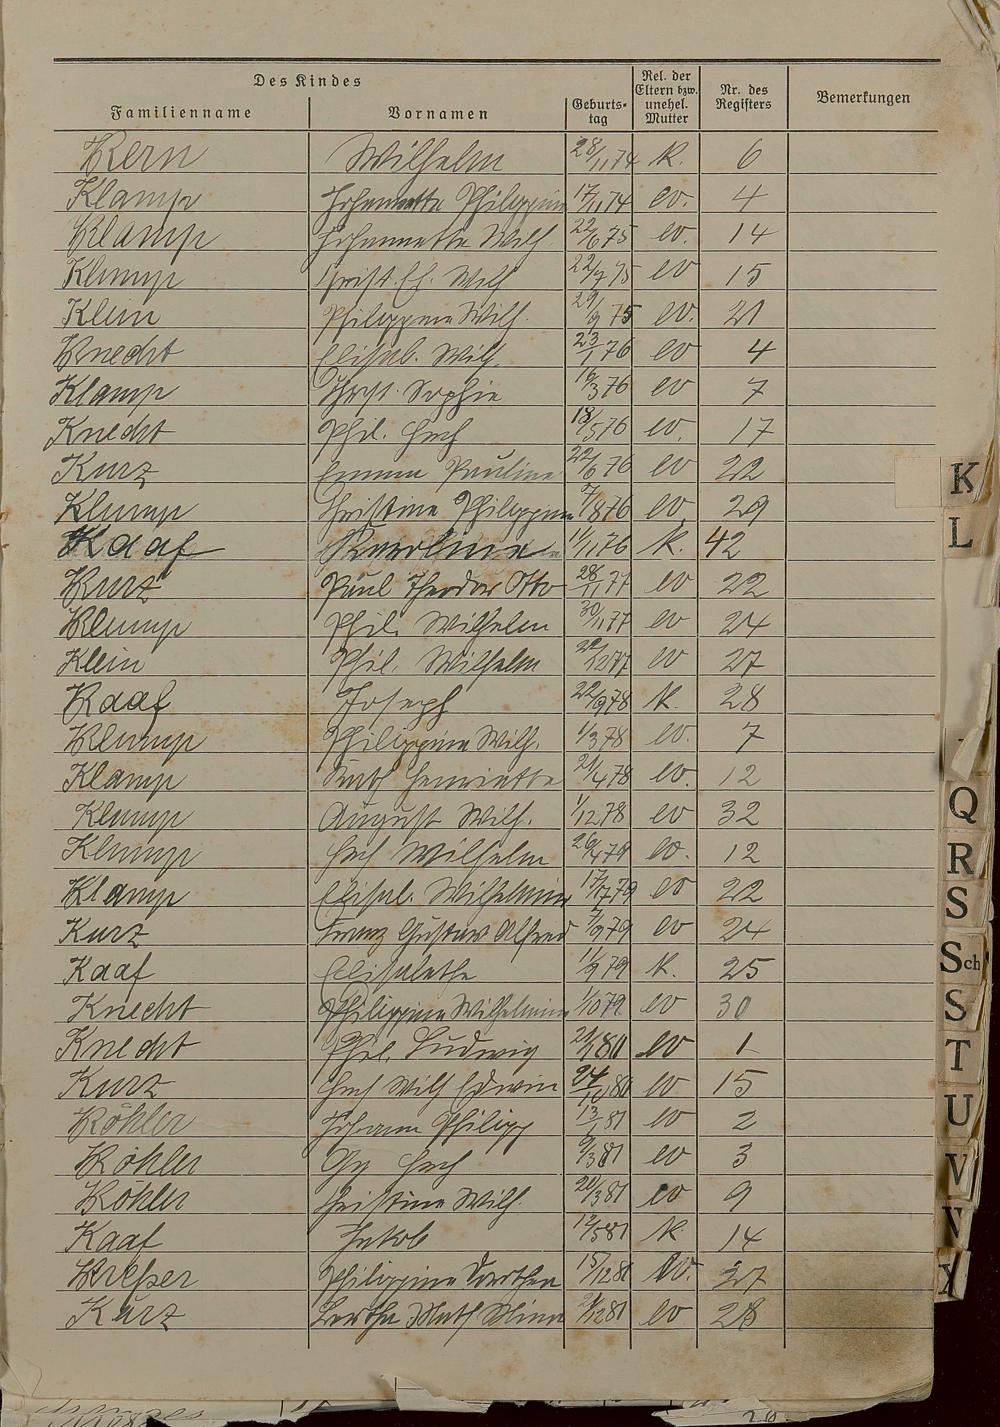 Des Kindes
Familienname Vornamen Geburts-tag Rel. der Eltern bzw. unehel. Mutter Nr. des Registers Bemerkungen
Kern Wilhelm 28/1 74 k. 6
Klamp Johannette Philippine 17/1 74 ev. 4
Klamp Johannette Wilh. 22/6 75 ev. 14
Klump Wilh 22/7 75 ev 15
Klein Philippine Wilh. 29/9 75 ev. 21
Knecht Elisab. Wilh. 23/1 76 ev 4
Klamp Christ. Sophie 16/3 76 ev 7
Knecht Phil. Hch 18/5 76 ev. 17
Kurz Emma Pauline 22/6 76 ev 22
Klump Christine Philippine 7/8 76 ev 29
Kaaf Karoline 11/11 76 k. 42
Kurz Paul Theodor Otto 28/11 77 ev 22
Klump Phil. Wilhelm 30/11 77 ev 24
Klein Phil. Wilhelm 22/12 77 ev 27
Kaaf Joseph 22/9 78 k. 28
Klump Philippine Wilh. 1/3 78 ev. 7
Klamp Henriette 21/4 78 ev. 12
Klump August Wilh. 1/12 78 ev 32
Klump Hch Wilhelm 26/4 79 ev. 12
Klamp Elisab. Wilhelmine 17/7 79 ev 22
Kurz Franz Gustav Alfred 7/9 79 ev 24
Kaaf Elisabethe 11/9 79 k. 25
Knecht Philippine Wilhelmine 1/10 79 ev 30
Knecht Phil. Ludwig 21/1 80 ev 1
Kurz Hch Wilh Edwin 24/10 80 ev 15
Köhler Johann Philipp 13/1 81 ev 2
Köhler Gg Hch 9/3 81 ev 3
Köhler Christine Wilh. 21/3 81 ev 9
Kaaf Jakob 12/5 81 k 14
Kreßer Philippine Dorthea 15/12 81 ev. 27
Kurz Bertha Math Mina 21/12 81 ev 28
K
L
Q
R
S
Sch
S
T
U
V
X